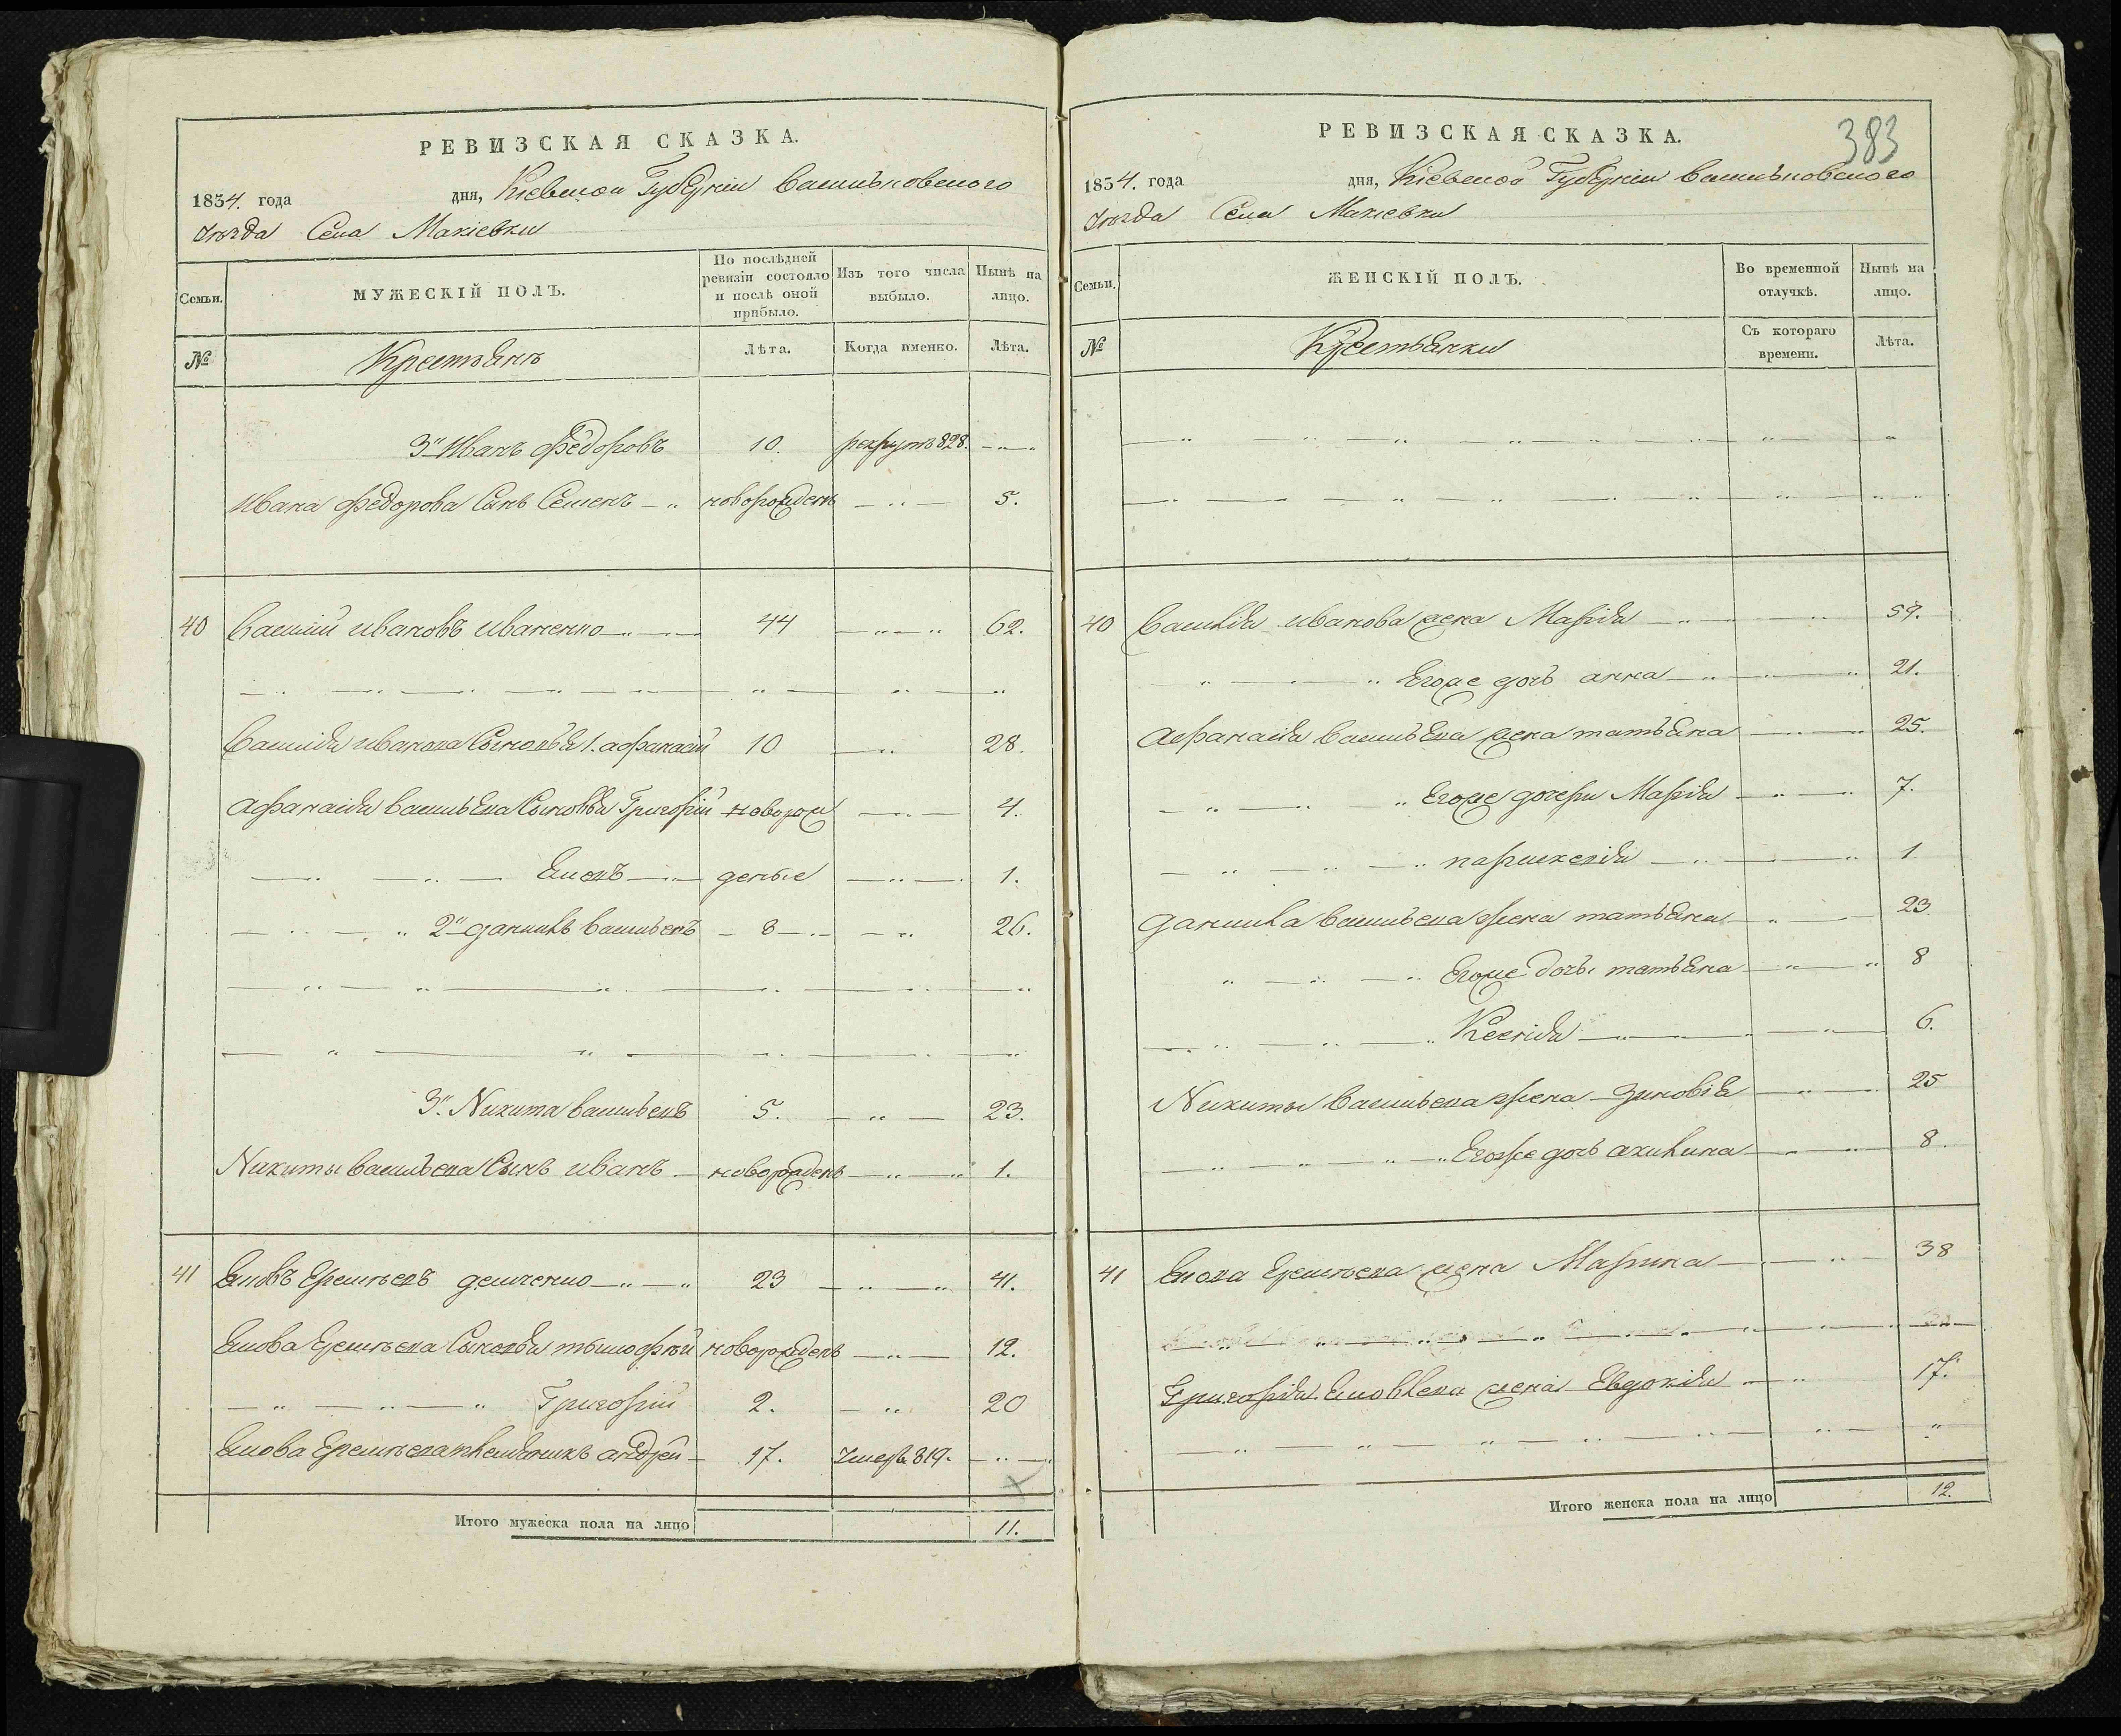 РЕВИЗСКАЯ СКАЗКА.
1834. года дня, Кіевской Губерніи Васильковского
Уѣзда Села Макіевки
Семьи.
МУЖЕСКІЙ ПОЛЪ.
По послѣдней
ревизіи состояло
и послѣ оной
прибыло.
Изъ того числа
выбыло.
Нынѣ на
лицо.
№
Крестьянъ
Лѣта.
Когда именно.
Лѣта.
3й Иванъ Федоровъ 10. рекрутъ 828.
Ивана Федорова Сынъ Семенъ новорожденъ 5.
40 Василий Ивановъ Иваненко 44 62.
Василія Иванова Сыновья 1. Афанасій 10 28.
Афанасія Васильева Сыновья Григорій новорож 4.
Яковъ деные 1.
2й Данилъ Васильевъ 8 26.
3й Никита Васильевъ 5. 23.
Никиты Васильева Сынъ Иванъ новорожденъ 1.
41 Яковъ Еремѣевъ Демченко 23 41.
Якова Еремѣева Сыновья Тымофѣй новорожденъ 12.
Григорій 2. 20
Якова Еремѣева племяникъ Андрей 17. Умеръ 819.
Итого мужеска пола на лицо 11.
383
РЕВИЗСКАЯ СКАЗКА.
1834. года дня, Кіевской Губерніи Васильковского
Уѣзда Села Макіевки
Семьи.
ЖЕНСКІЙ ПОЛЪ.
Во временной
отлучкѣ.
Нынѣ на
лицо.
№
Крестьянки
Съ котораго
времени.
Лѣта.
40 Василія Иванова жена Марія 59.
Егоже дочь Анна 21.
Афанасія Васильева жена Татьяна 25.
Егоже дочери Марія 7.
Параскевія 1
Данила Васильева жена Татьяна 23
Егоже дочь Татьяна 8
Ксенія 6.
Никиты Васильева жена Зиновія 25
Егоже дочь Акилина 8.
41 Якова Еремѣева жена Марина 38
Григорія Яковлева жена Евдокія 17.
Итого женска пола на лицо 12.